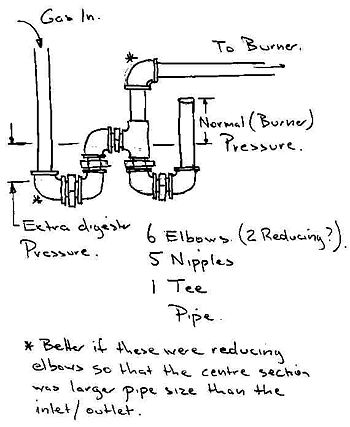 Gas In.
To Burner.
Normal (Burner)
Pressure.
*
*
Extra digester
Pressure.
6 Elbows. (2 Reducing?).
5 Nipples
1 Tee
Pipe.
* Better if these were reducing
elbows so that the centre section
was larger pipe size than the
inlet/outlet.